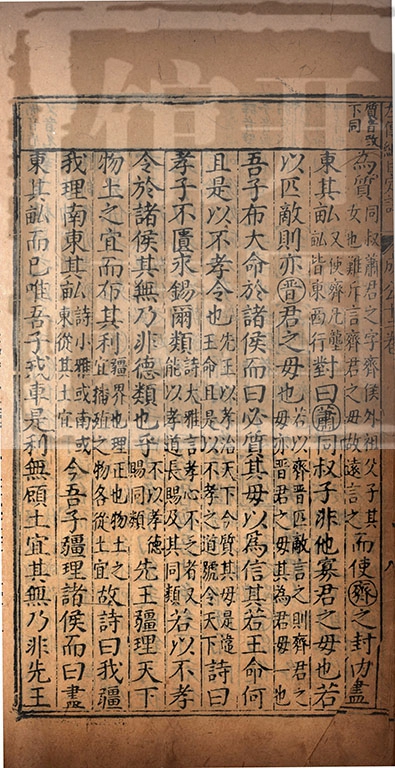 質音致
下同
為質同叔蕭君之字齊侯外祖父子其女也難斥言齊君之母故遠言之而使齊之封內盡
東其畝又使齊凡壟畝皆東西行對曰蕭同叔子非他寡君之母也若
以匹敵則亦晉君之母也若以齊晉匹敵言之則齊君之母亦晉君之母其為君母一也
吾子布大命於諸侯而曰必質其母以爲信其若王命何
且是以不孝令也先王以孝治天下今質其母是違王命且是以不孝之道號令天下詩曰
孝子不匱永錫爾類詩大雅言孝心不乏之者又能以孝道長賜及其同類若以不孝
令於諸侯其無乃非德類也乎不以孝德賜同類先王疆理天下
物土之宜而布其利疆界也理正也物土之宜播殖之物各從土宜故詩曰我疆
我理南東其畝詩小雅或南或東從其土宜今吾子疆理諸侯而曰盡
東其畝而已唯吾子戎車是利無顧土宜其無乃非先王